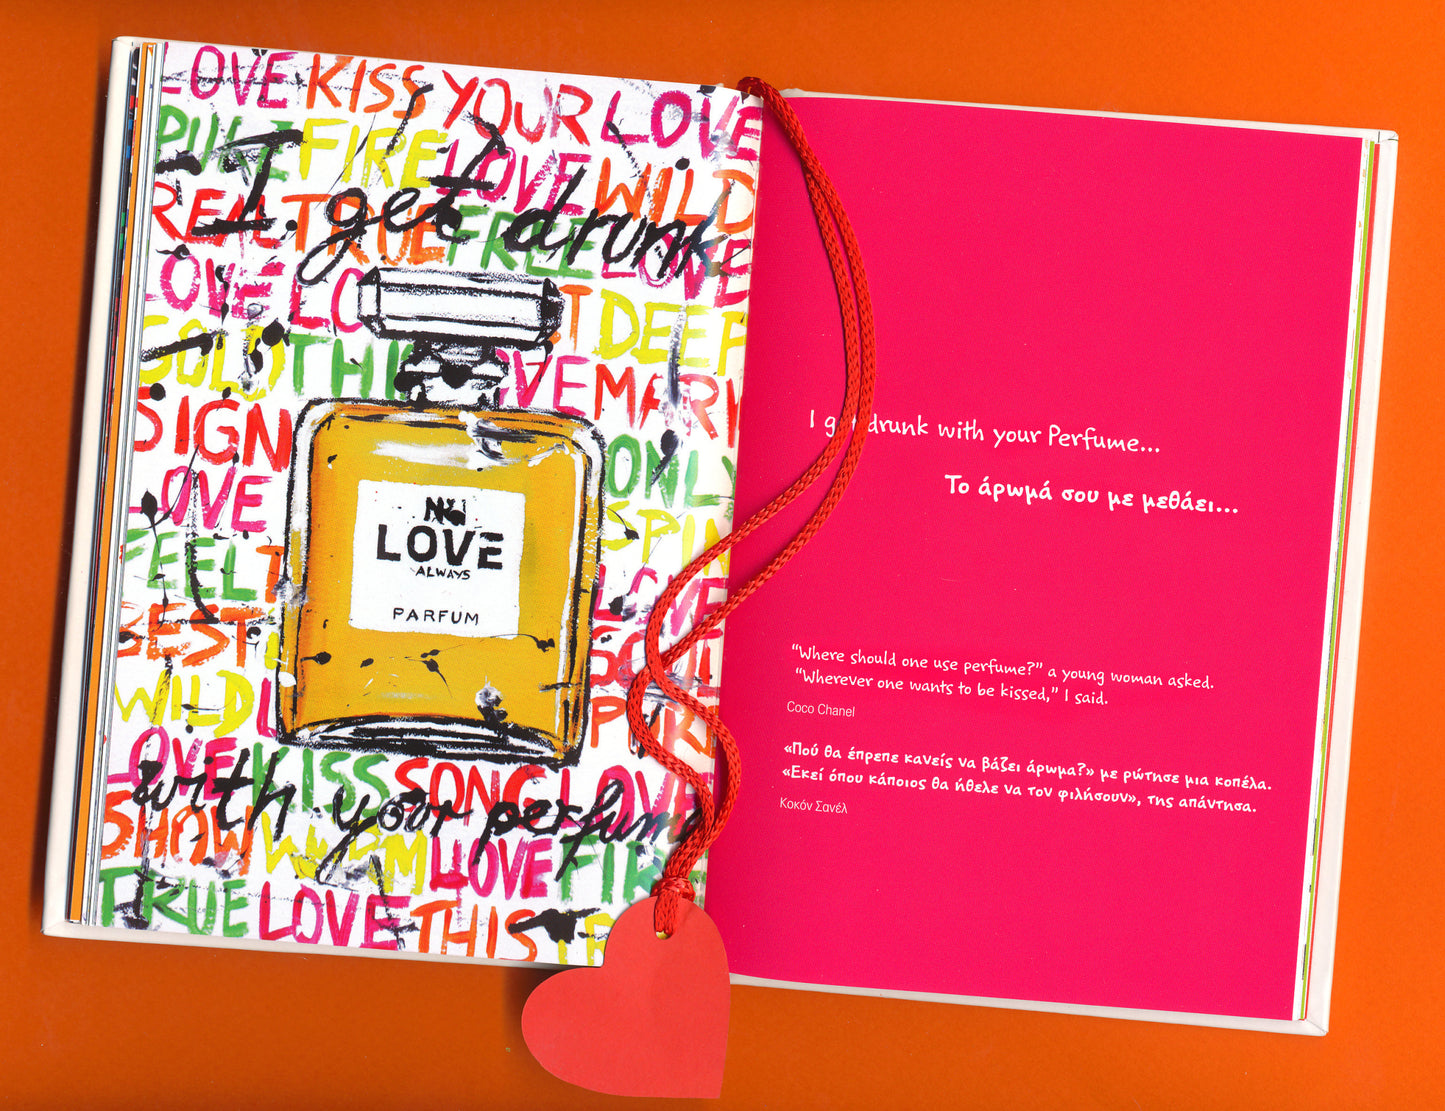 LOVE KISS YOUR LOVE
PURE FIRE LOVE WILD
I get drunk
REAL TRUE FREE LOVE
LOVE
DEEP
GOLD THI LOVE MARK
SIGN ONLY
LOVE SPIN
FEEL LOVE
BEST
WILD
LOVE KISS SONG LOVE
with your perfume
SHOW WARM LOVE FIRE
TRUE LOVE THIS
LOVE
ALWAYS
PARFUM
I get drunk with your Perfume...
Το άρωμά σου με μεθάει...
“Where should one use perfume?” a young woman asked.
“Wherever one wants to be kissed,” I said.
Coco Chanel
«Πού θα έπρεπε κανείς να βάζει άρωμα?» με ρώτησε μια κοπέλα.
«Εκεί όπου κάποιος θα ήθελε να τον φιλήσουν», της απάντησα.
Κοκόν Σανέλ